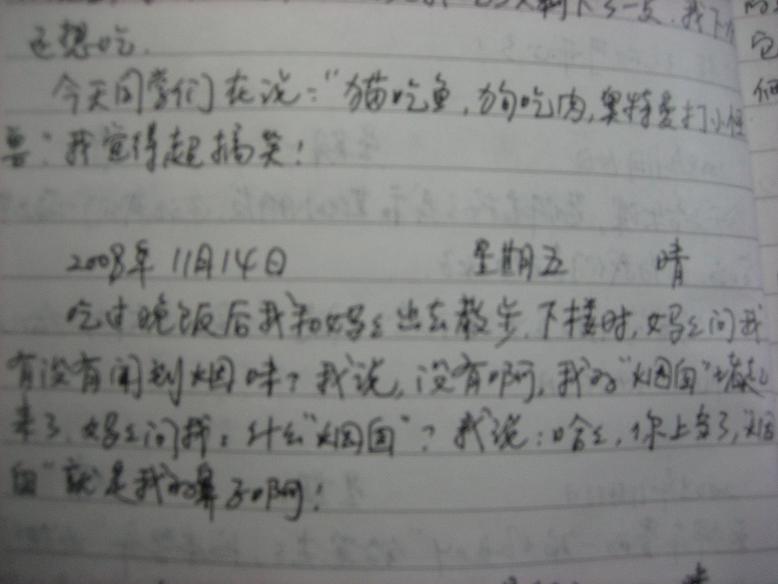 剩下了一点,我下
还想吃.
今天同学们在说:“猫吃鱼,狗吃肉,奥特曼打小怪
兽”我觉得超搞笑!
2008年11月14日 星期五 晴
吃过晚饭后我和妈妈出去散步.下楼时,妈妈问我
有没有闻到烟味?我说,没有啊,我的“烟囱”堵起
来了.妈妈问我:什么“烟囱”?我说:哈哈,你上当了,烟
囱”就是我的鼻子啊!